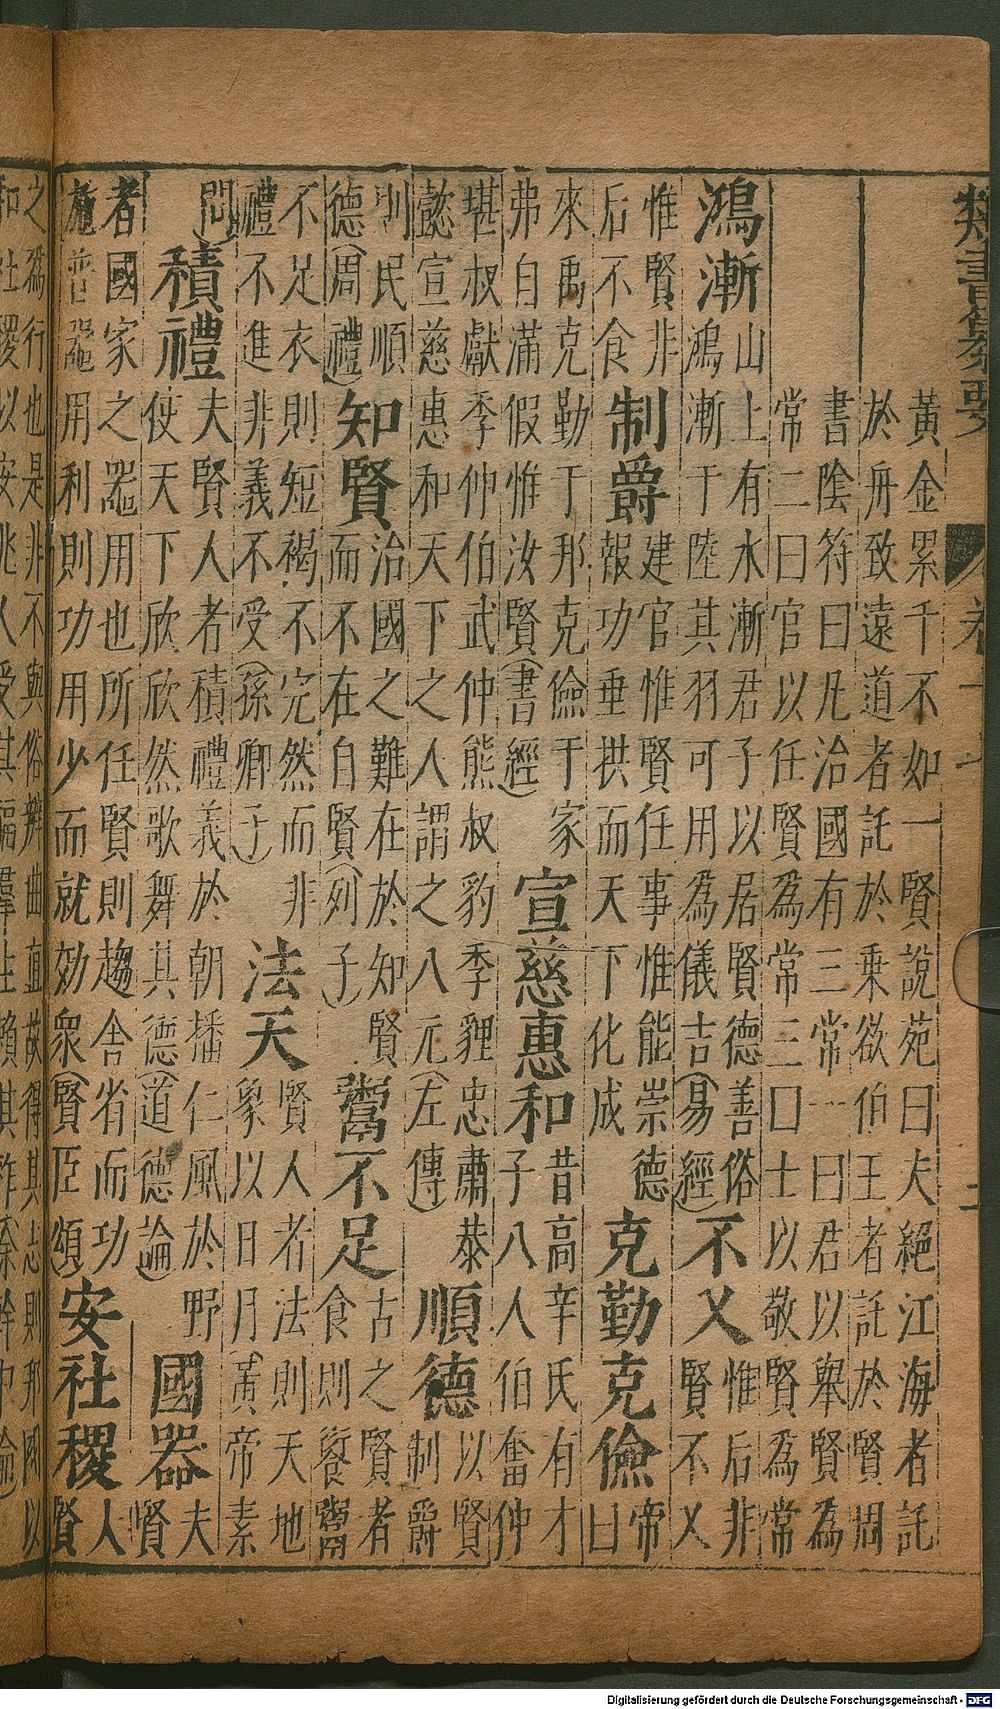 類書纂要 卷十七 二
黃金累千不如一賢說苑曰夫絕江海者託
於舟致遠道者託於乗欲伯王者託於賢周
書陰符曰凡治國有三常一曰君以舉賢為
常二曰官以任賢為常三曰士以敬賢為常
鴻漸 山上有水漸君子以居賢德善俗鴻漸于陸其羽可用為儀吉(易經) 不乂 惟后非賢不乂
惟賢非后不食 制爵 建官惟賢任事惟能崇德報功垂拱而天下化成 克勤克儉 帝曰
來禹克勤于邦克儉于家弗自滿假惟汝賢(書經) 宣慈惠和 昔高辛氏有才子八人伯奮仲
堪叔獻季仲伯武仲熊叔豹季貍忠肅恭懿宣慈惠和天下之人謂之八元(左傳) 順德 以賢制爵
則民順德(周禮) 知賢 治國之難在於知賢而不在自賢(列子) 鬻不足 古之賢者食則餰鬻
不足衣則短褐不完然而非禮不進非義不受(孫卿子) 法天 賢人者法則天地象以日月(黃帝素
問) 積禮 夫賢人者積禮義於朝播仁風於野使天下欣欣然歌舞其德(道德論) 國器 夫賢
者國家之器用也所任賢則趨舍省而功施普器用利則功用少而就効衆(賢臣頌) 安社稷 人賢
之為行也是非不與俗辨曲直故得其志則邦國以
和社稷以安兆人受其福群生賴其祚
Digitalisierung gefördert durch die Deutsche Forschungsgemeinschaft - DFG